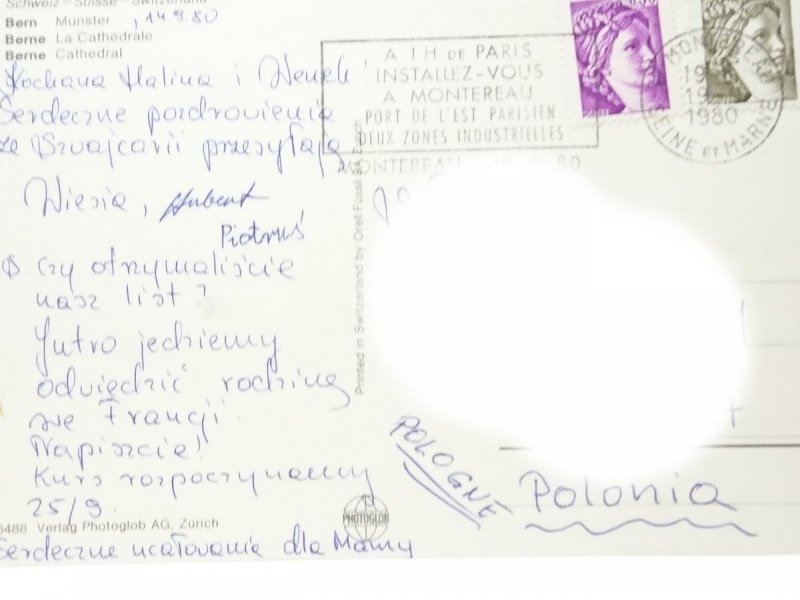 Schweiz – Suisse – Switzerland
Bern Münster , 14.9.80
Berne La Cathédrale
Berne Cathedral
Kochana Halina i Heniek
Serdeczne pozdrowienia
ze Szwajcarii przesyłają
Wiesia, Hubert
Piotruś
Czy otrzymaliście
nasz list?
Jutro jedziemy
odwiedzić rodzinę
we Francji.
Napiszcie!
Kurs rozpoczynamy
25/9.
6488 Verlag Photoglob AG, Zürich
Serdeczne ucałowania dla Mamy
Printed in Switzerland by Orell Füssli AG Zürich
PHOTOGLOB
A 1H DE PARIS
INSTALLEZ-VOUS
A MONTEREAU
PORT DE L'EST PARISIEN
DEUX ZONES INDUSTRIELLES
MONTEREAU 80
1980
SEINE ET MARNE
POLOGNE
Polonia